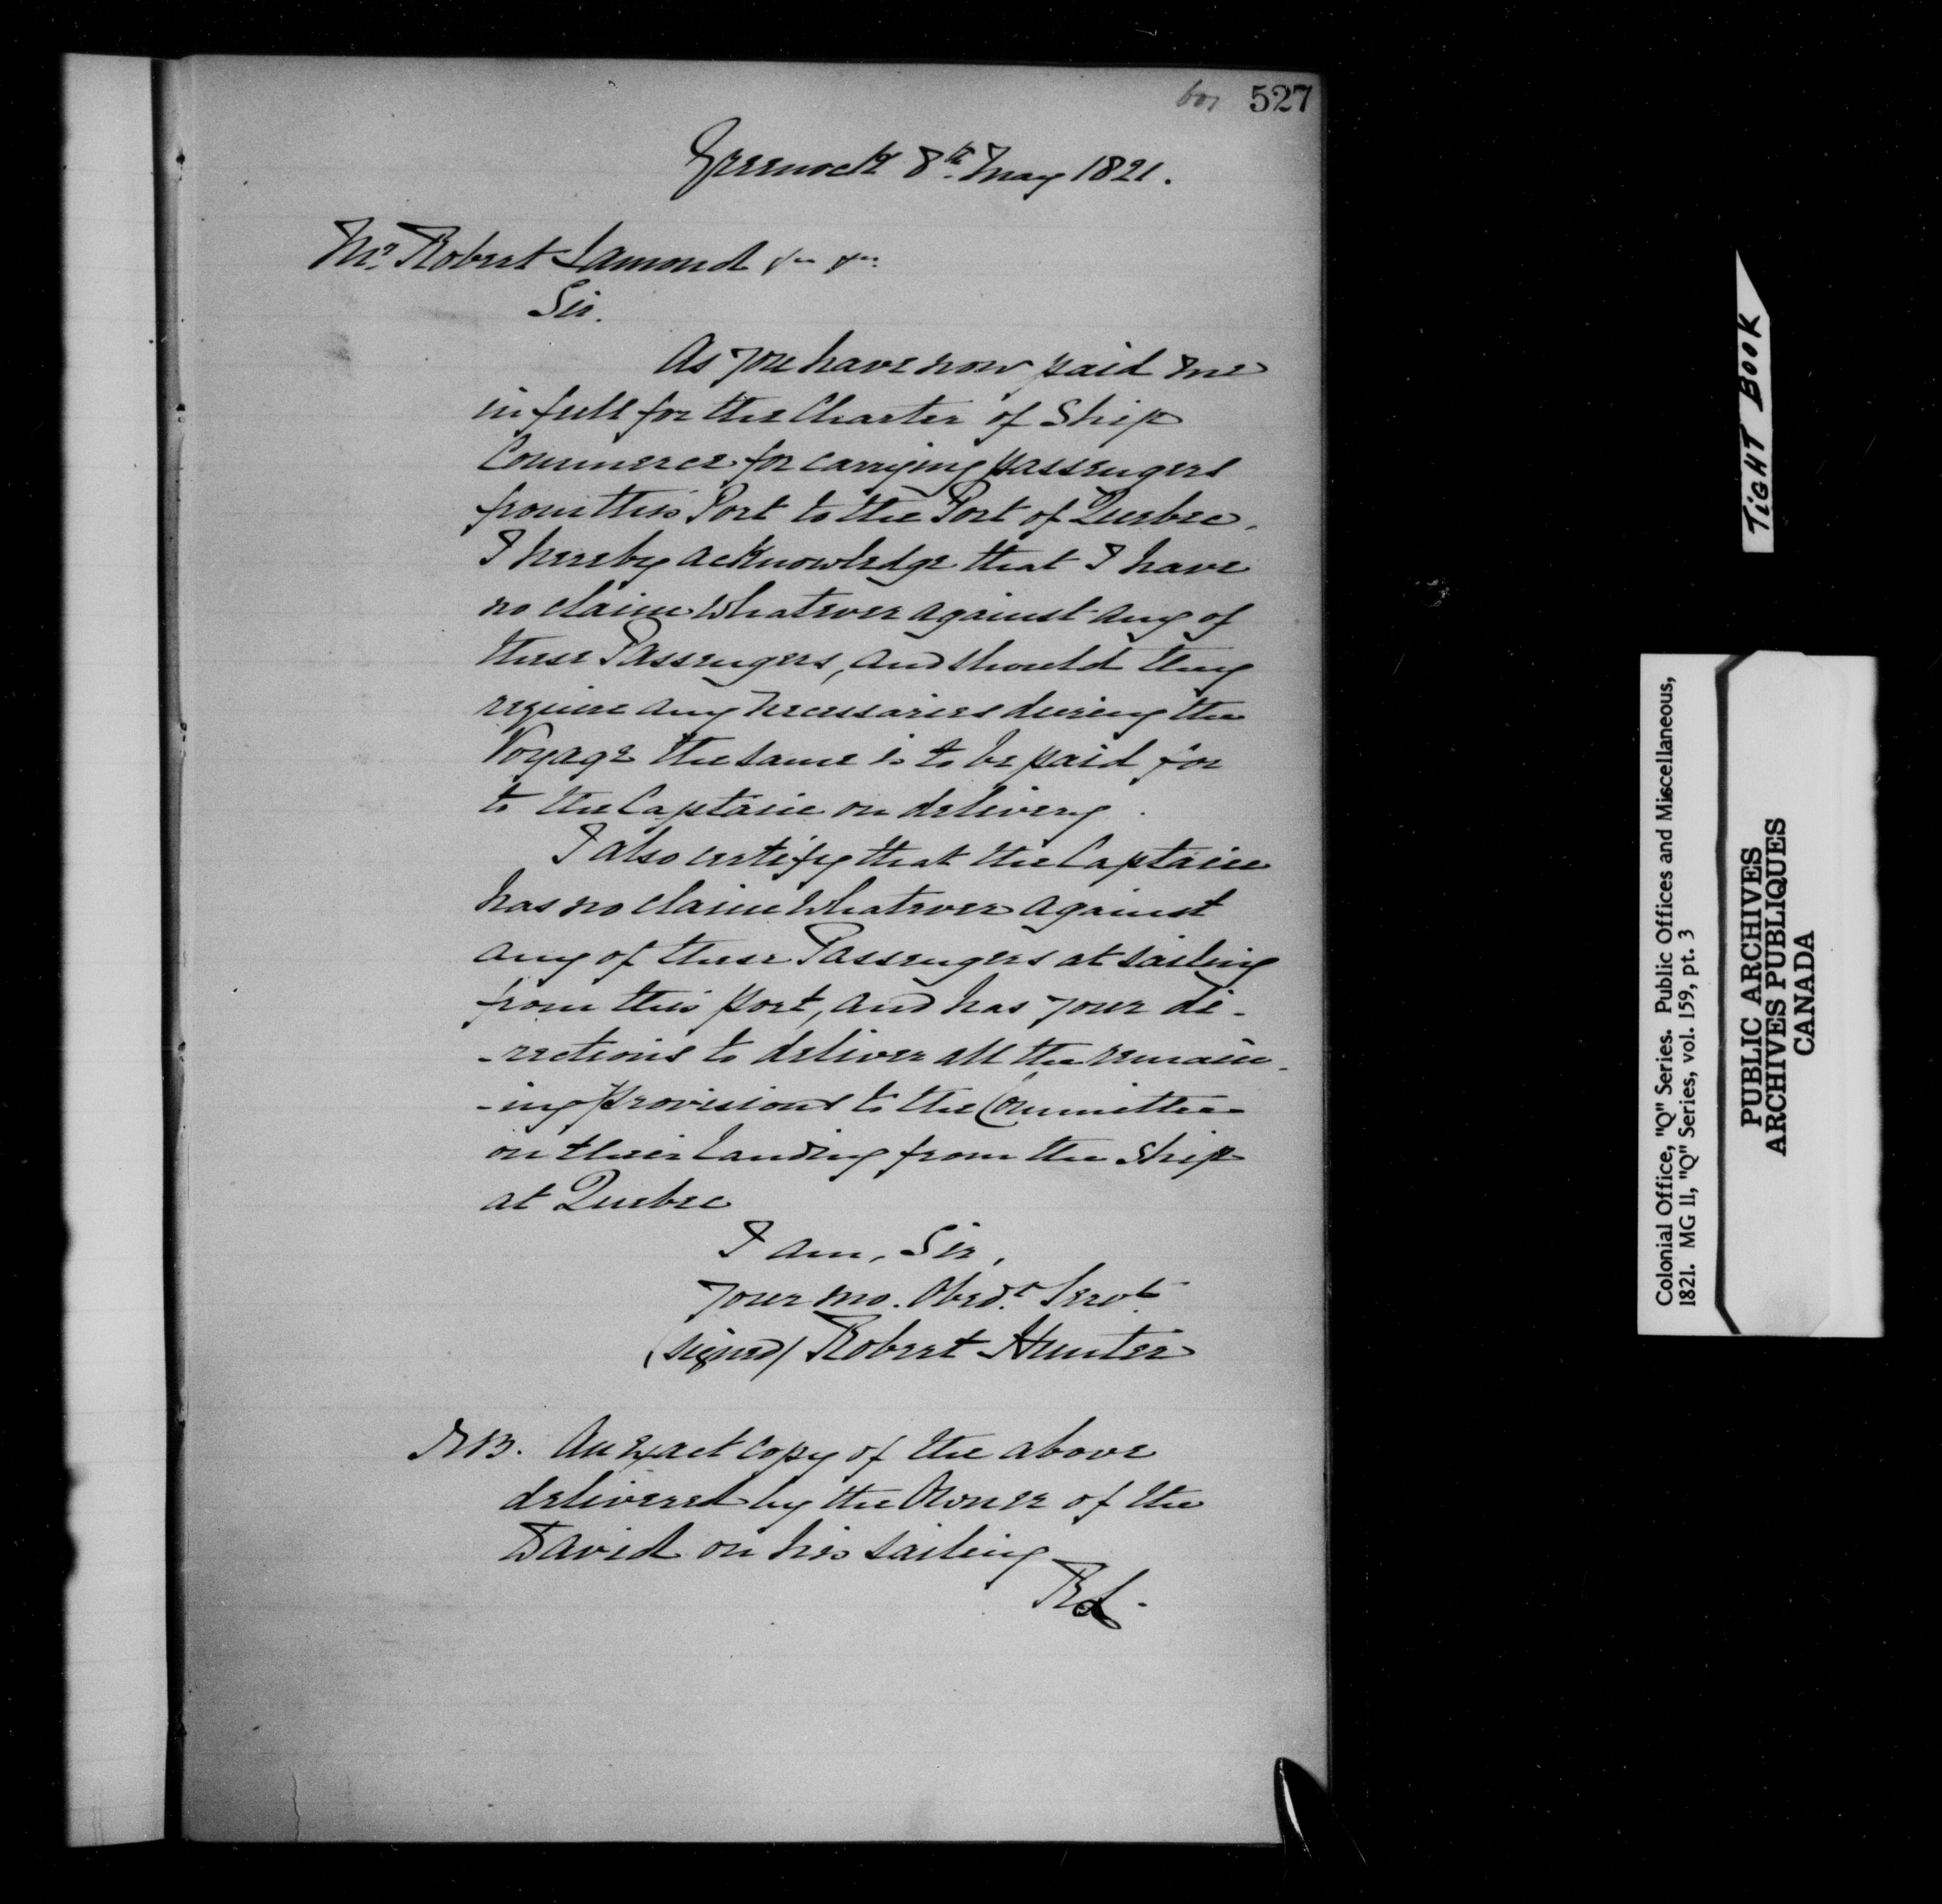 527
Greenock 8th May 1821.
Mr. Robert Lamond
Sir.
As you have now paid me
in full for the Charter of Ship
Commerce for carrying passengers
from this Port to the Port of Quebec,
I hereby acknowledge that I have
no claim whatever against any of
these Passengers, and should they
require any necessaries during the
Voyage the same is to be paid for
to the Captain on delivery.
I also certify that the Captain
has no claim whatever against
any of these Passengers at sailing
from this port, and has your di-
-rections to deliver all the remain-
-ing provisions to the Committee
on their landing from the Ship
at Quebec
I am, Sir,
Your mo. Obedt. Servt.
(signed) Robert Hunter
NB. An exact copy of the above
delivered by the Owner of the
David on his sailing
RL.
TIGHT BOOK
Colonial Office, "Q" Series. Public Offices and Miscellaneous,
1821. MG 11, "Q" Series, vol. 159, pt. 3
PUBLIC ARCHIVES
ARCHIVES PUBLIQUES
CANADA